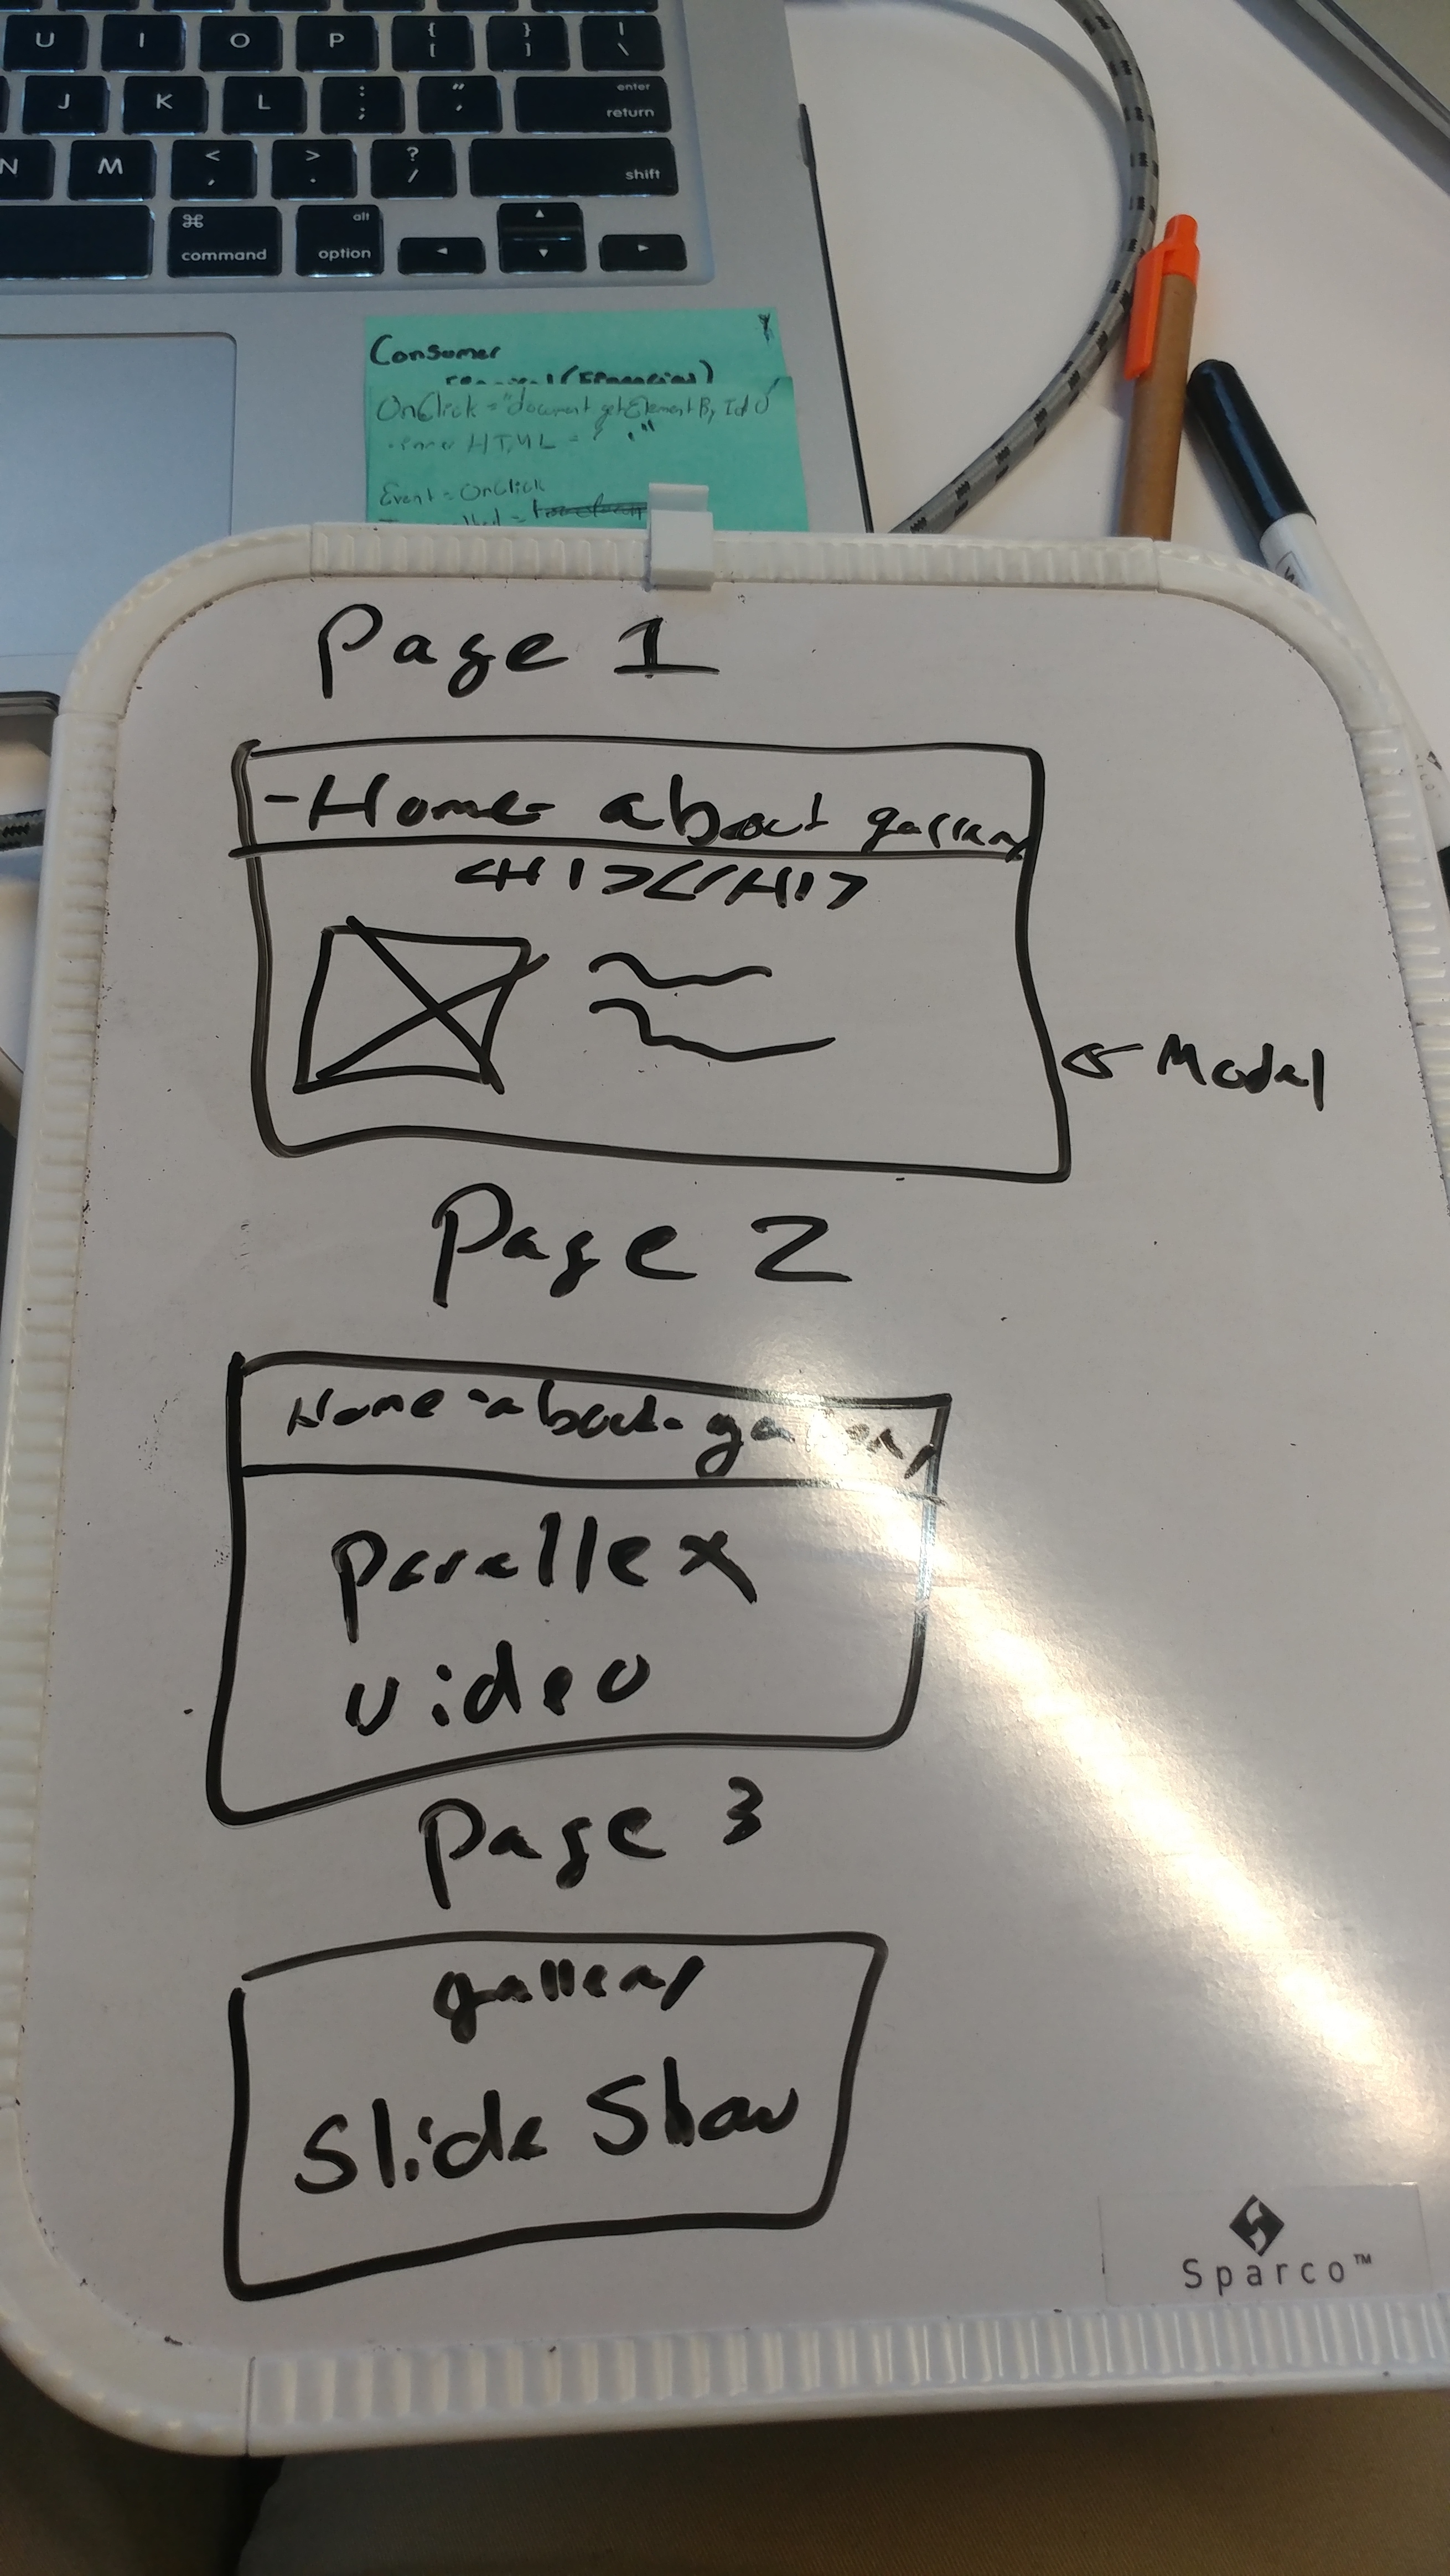 U I O P { [ } ] | \
J K L : ; " ' enter return
N M < , > . ? / shift
⌘ command alt option ◄ ▲ ▼ ►
Consumer
(Financial)
OnClick = "document getElementById()
HTML = ? ."
Event = OnClick
Page 1
-Home- about gallery
<H1></H1>
← Model
Page 2
Home -about- gallery
parallex
video
Page 3
gallery
Slide Show
Sparco™